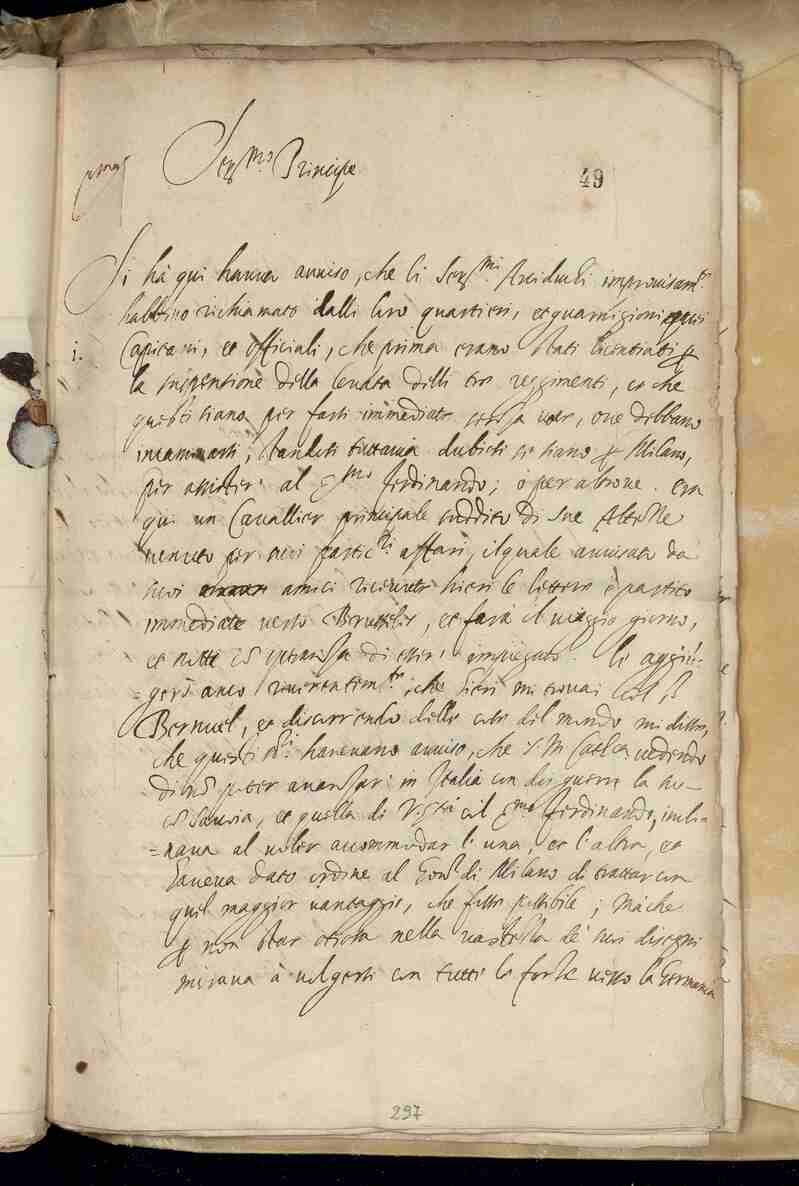 Ser.mo Principe
49
prima
Si hà qui hauea auuiso, che li Ser.mi Arciduchi improuisam.te
habbino richiamato dalli loro quartieri, et guarnigioni
Capitani, et officiali, che prima erano stati licentiati
la suspensione della leuata delli tre reggimenti, et che
questi siano per farsi immediate, oue debbano
incaminarsi; standosi tuttauia dubiosi se siano per Milano,
per assister al Ferdinando; ò per altroue. Era
qui un Cauallier principale suddito di sue Altezze
uenuto per suoi partic.ri affari, il quale auuisato da
suoi amici riceuute hieri le lettere è partito
immediate uerso Brusseles, et farà il uiaggio giorno,
et notte con speranza di esser impiegato. Le aggion-
gerò anco riuerentem.te, che hieri mi trouai col S.r
Beruuel, et discorrendo delle cose del mondo mi disse,
che questi SS.ri haueuano auuiso, che S. M. Catt.ca uedendo
di non poter auanzar in Italia con due guerre la sua
con Sauoia, et quella di V. Ser.tà col Ferdinando, incli-
naua al uoler accommodar l'una, et l'altra, et
haueua dato ordine al Gou.r di Milano di trattar con
quel maggior uantaggio, che fusse possibile; mà che
per non star otiosa nella uastezza de suoi disegni
miraua à uolgersi con tutte le forze uerso la Germania
297